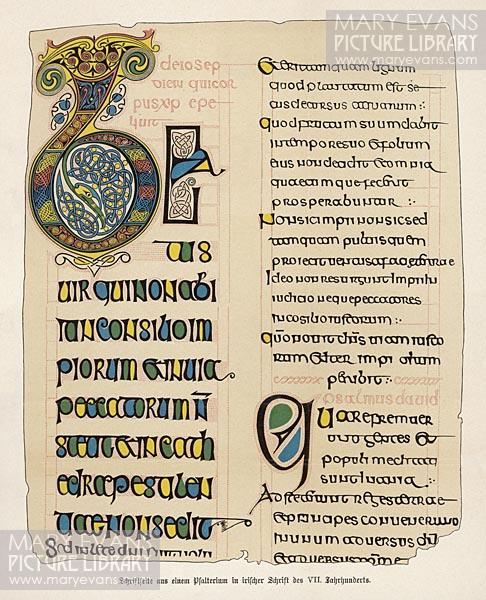 MARY EVANS
PICTURE LIBRARY
www.maryevans.com
de iosep
dicit qui cor
pus xpi epe
liuit
BEA
TUS
UIR QUI NON ABI
IT IN CONSILIO IM
PIORUM ET IN UIA
PECCATORUM N̄
STETIT ET IN CATH
EDRA PESTILEN
TIAE NON SEDIT
Sed in lege dni
Et erit tamquam lignum
quod plantatum est se
cus decursus aquarum:·
quod fructum suum dabit
in tempore suo et folium
eius non decidet et omnia
quaecumque faciet
prosperabuntur :·
Non sic impii non sic sed
tamquam puluis quem
proiecit uentus a facie terrae
Ideo non resurgunt impii in
iudicio neque peccatores
in consilio iustorum:·
quō nouit dns̄ uiam iusto
rum et iter impiorum
peribit:·
psalmus dauid
Quare fremuer
unt gentes et
populi meditati
sunt inania:·
Adsteterunt reges terrae
et principes conuenerunt
in unum aduersus dn̄m
et aduersus
MARY EVANS
PICTURE LIBRARY
www.maryevans.com
Schriftseite aus einem Psalterium in irischer Schrift des VII. Jahrhunderts.